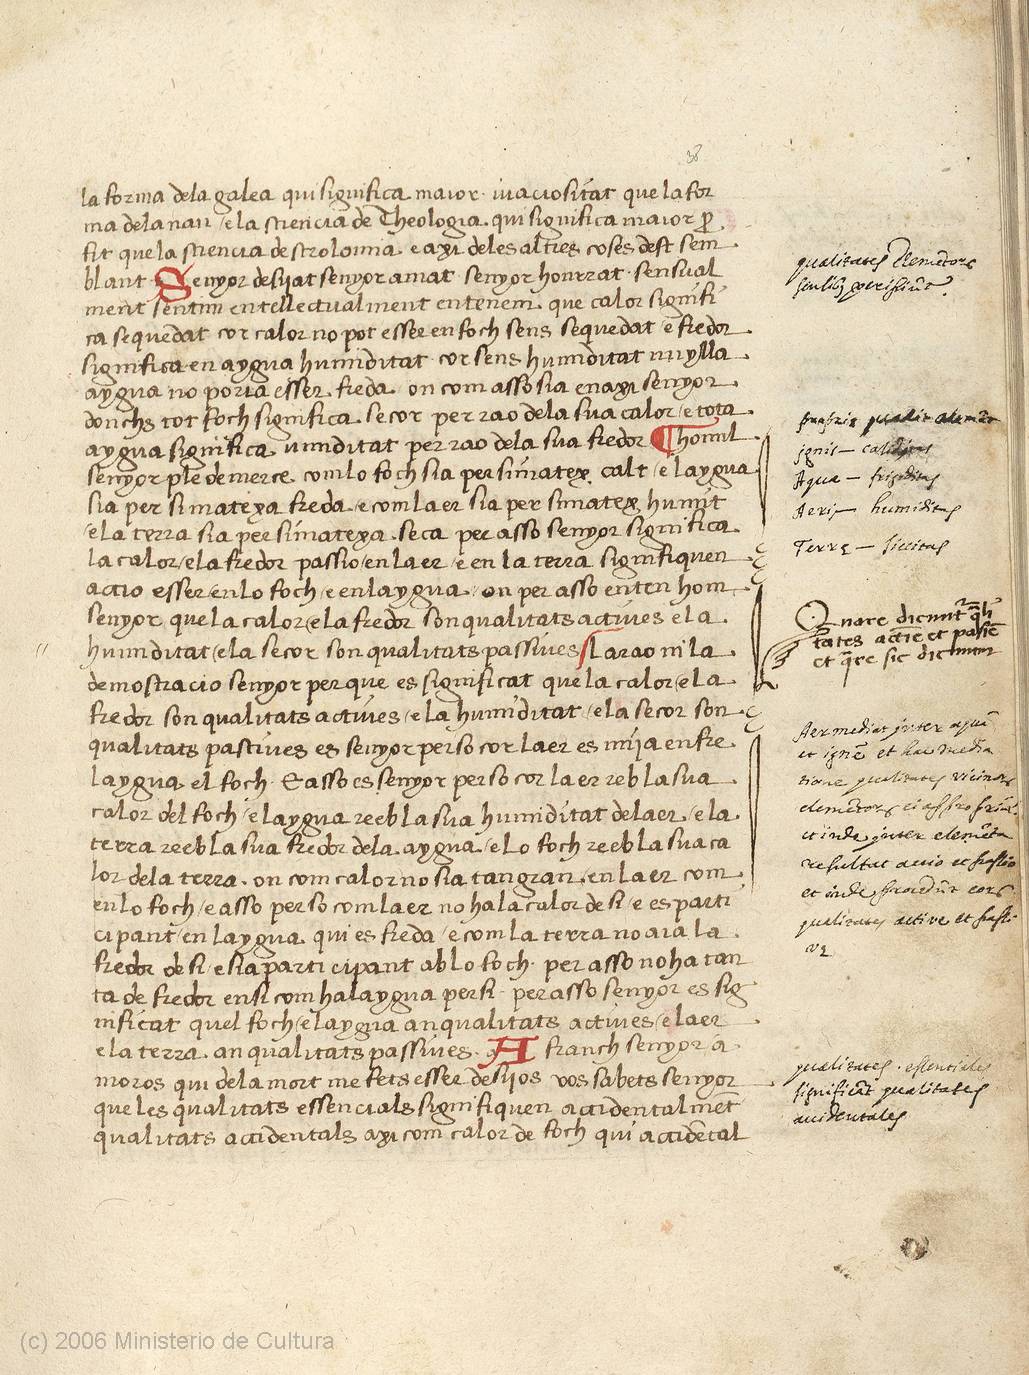 38
la forma dela galea qui significa maior iuaciositat que la for
ma dela nau / e la sciencia de Theologia qui significa maior ꝓ
fit que la sciencia de strolomia e axi deles altres coses dest sem
blant Senyor desijat senyor amat senyor honrrat sensual
ment sentim entellectualment entenem que calor signifi
ca sequedat cor calor no pot esser en foch sens sequedat e fredor
significa en aygua humiditat cor sens humiditat nuylla
aygua no poria esser freda on com asso sia en axi senyor
donchs tot foch significa secor per rao dela sua calor / e tota
aygua significa umiditat per rao dela sua fredor Thomil
senyor ple de merce com lo foch sia per simatex calt / e laygua
sia per simatexa freda e com laer sia per simatex humit
/ e la terra sia per simatexa seca per asso senyor significa
la calor / e la fredor passio / en laer / e en la terra signifiquen
actio esser / en lo foch / e en laygua / on per asso enten hom
senyor que la calor / e la fredor son qualitats actiues e la
humiditat / e la secor son qualitats passiues La rao ni la
demostracio senyor per que es significat que la calor / e la
fredor son qualitats actiues / e la humiditat / e la secor son
qualitats passiues es senyor per so cor laer es mija enfre
laygua el foch E asso es senyor per so cor laer reeb la sua
calor del foch / e laygua reeb la sua humiditat de laer / e la
terra reeb la sua fredor dela aygua / e lo foch reeb la sua ca
lor dela terra on com calor no sia tan gran en laer com
en lo foch / e asso per so com laer no ha la calor de si / e es parti
cipant / en laygua qui es freda / e com la terra no aia la
fredor de si / e sia participant ab lo foch per asso no ha tan
ta de fredor en si com ha laygua per si per asso senyor es sig
nificat quel foch / e laygua an qualitats actiues / e laer
e la terra an qualitats passiues A franch senyor a
moros qui dela mort me fets esser desijos vos sabets senyor
que les qualitats essencials signifiquen accidentalmēt
qualitats accidentals axi com calor de foch qui accidētal
qualitates Elemētorꝫ
ignis — caliditas
Aqua — frigiditas
Aeris — humiditas
Terrę — siccitas
Quare dicunt̃ q̃li
tates actiẽ et pasiẽ
et q̃re sic dicuntur
Aer mediat inter aquā
et ignē et hac media
tione qualitates vicinorꝫ
elemētorꝫ
et inde inter elemēta
resultat actio et passio
et inde
qualitates active et passi
vę
qualitates essentiales
significāt qualitates
accidentales
(c) 2006 Ministerio de Cultura